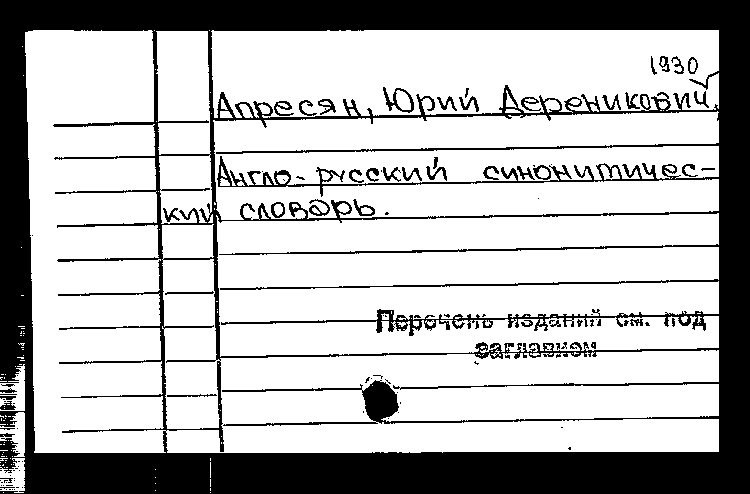 1930
Апресян, Юрий Дереникович,
Англо-русский синонимичес-
кий словарь.
Перечень изданий см. под
заглавием